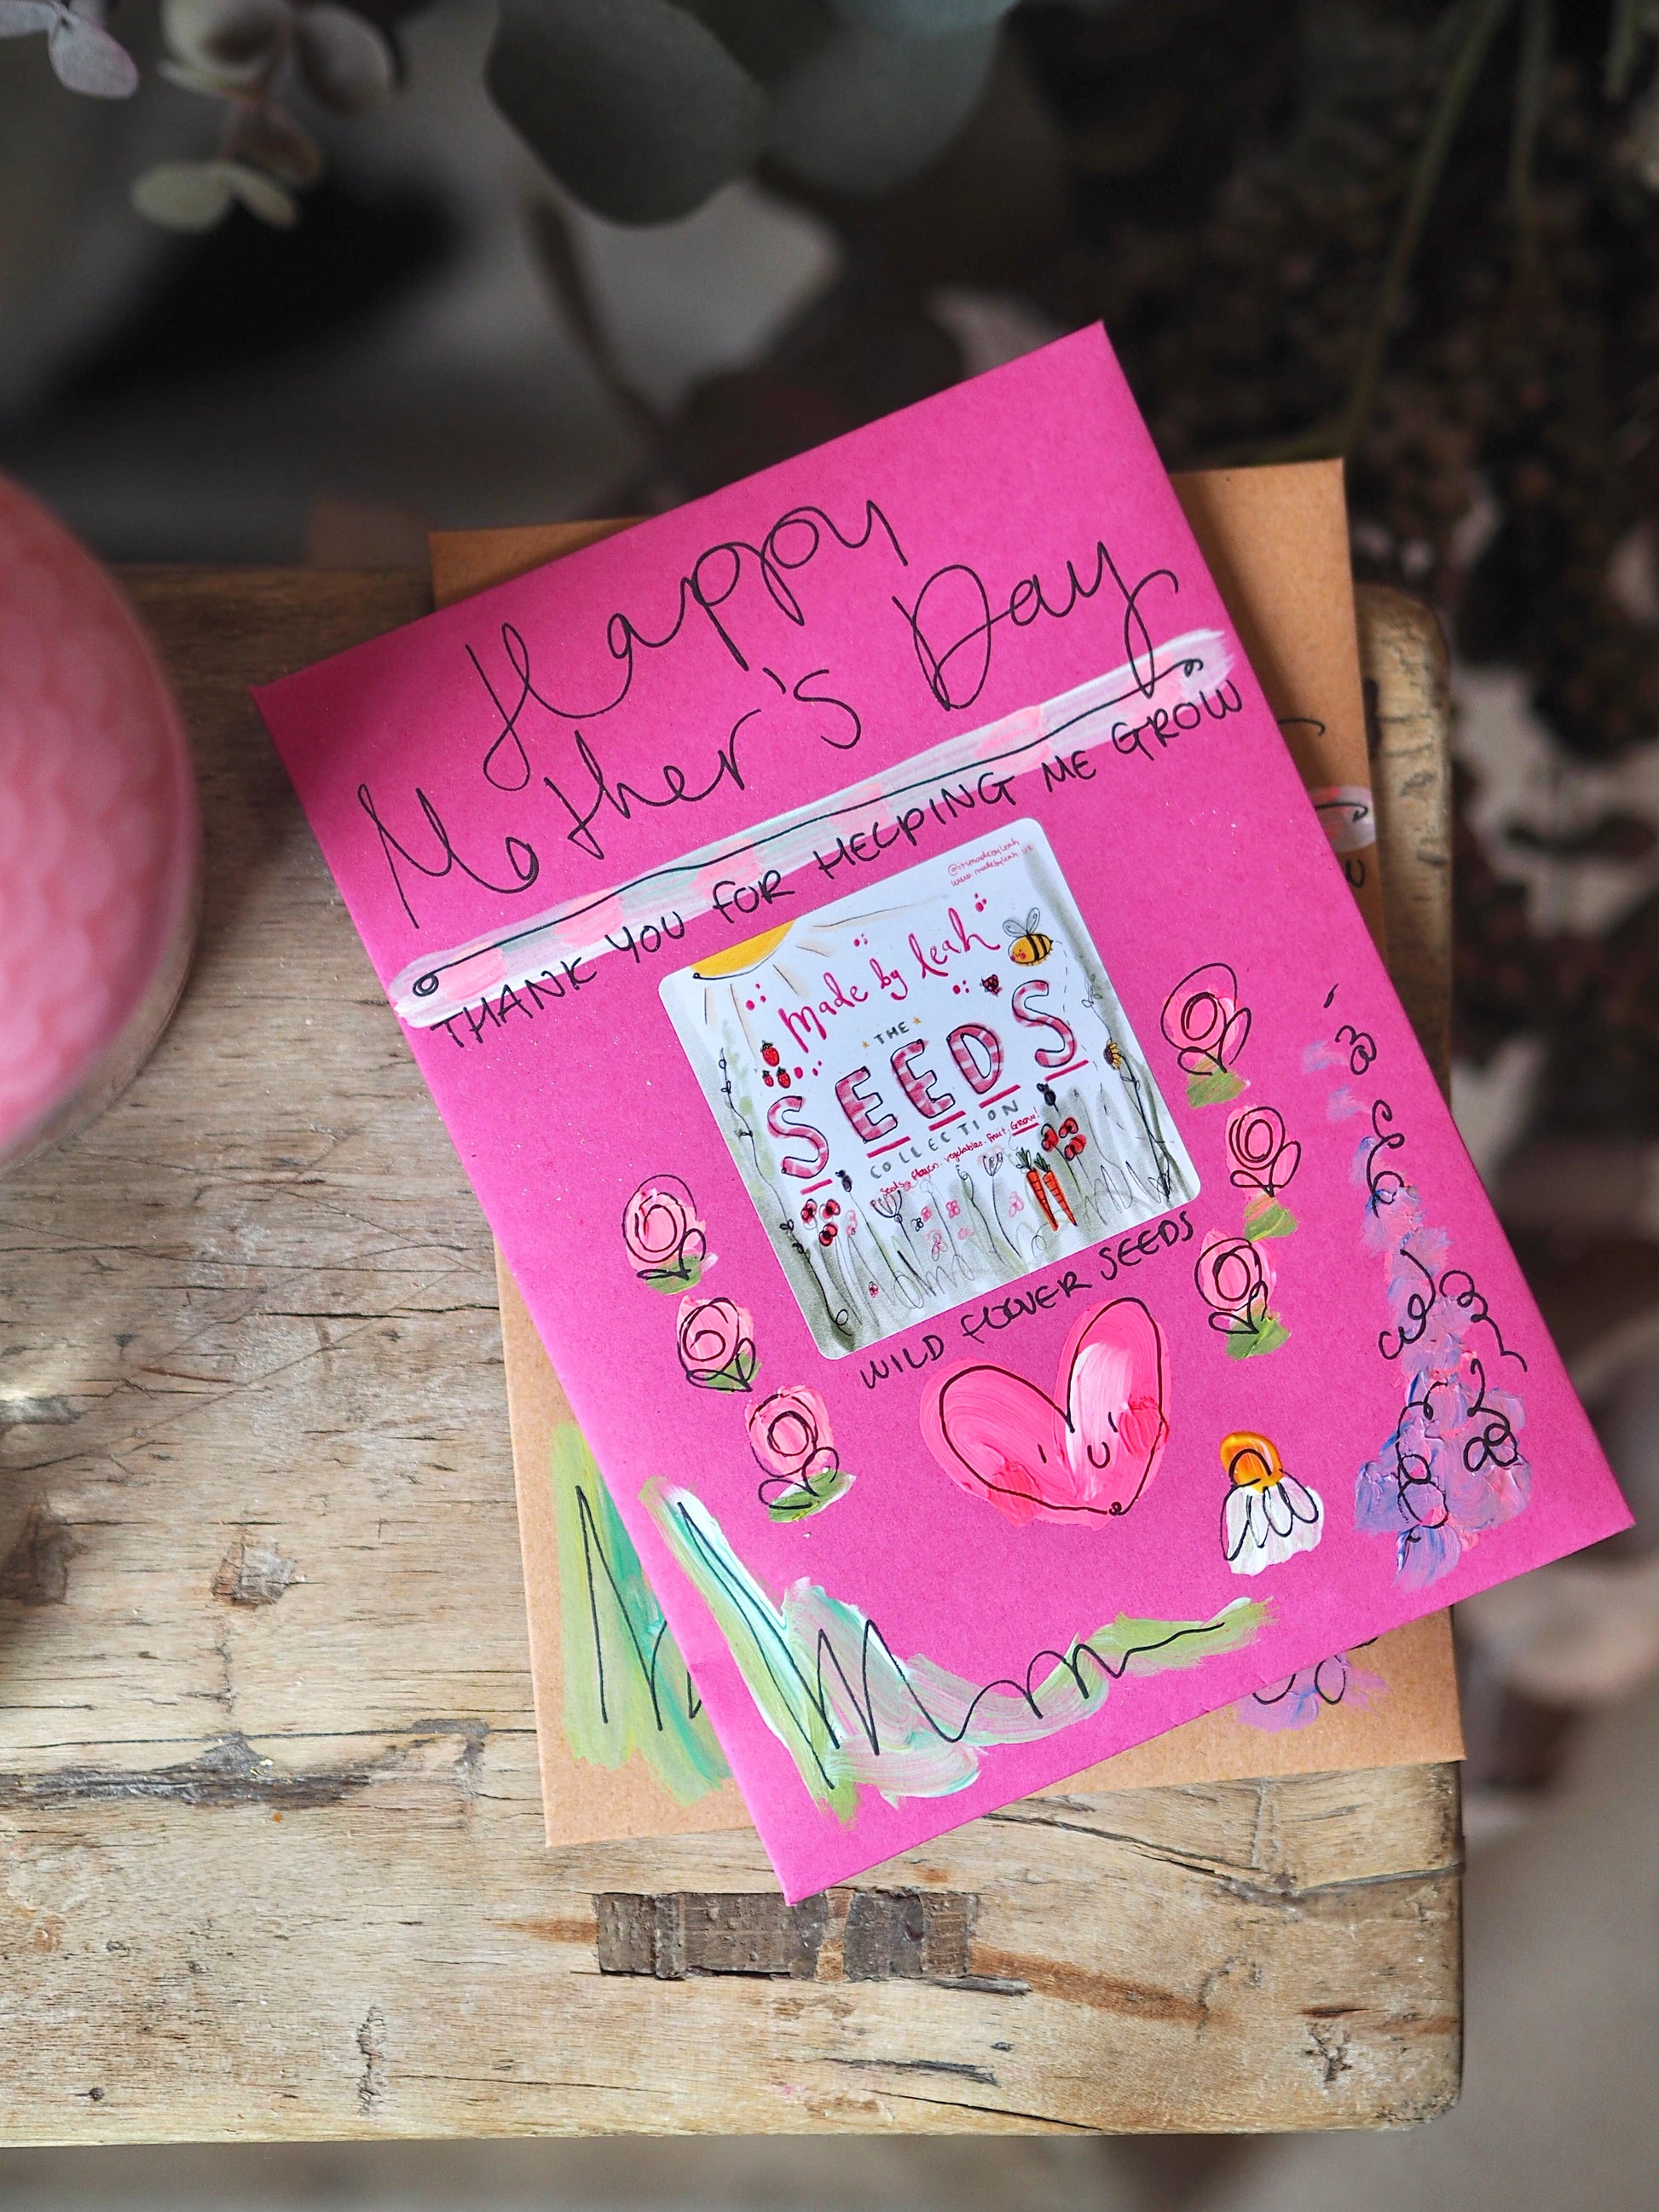 Happy
Mother's Day
THANK YOU FOR HELPING ME GROW
@itsmadebyleah
www.madebyleah.uk
Made by leah
THE
SEEDS
COLLECTION
WILD FLOWER SEEDS
Mum